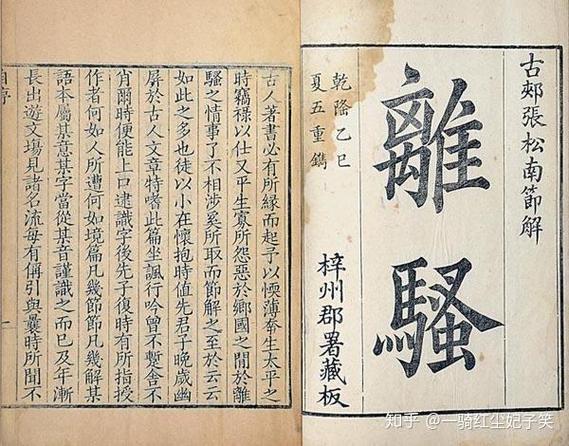 古郟張松南節解
離騷
乾隆乙巳
夏五重鐫
梓州郡署藏板
古人著書必有所緣而起予以愞薄忝生太平之
時竊祿以仕又平生寡所怨惡於鄉國之間於離
騷之情事了不相涉奚所取而節解之至於云云
如此之多也徒以小在懷抱時值先君子晚歲幽
屏於古人文章特嗜此篇坐諷行吟曾不暫舍不
肖爾時便能上口逮識字後先子復時有所指授
作者何如人所遭何如境篇凡幾節節凡幾解某
語本屬某意某字當從某音謹識之而已及年漸
長出遊文塲見諸名流每有稱引與曩時所聞不
自序
一
知乎 @一骑红尘妃子笑